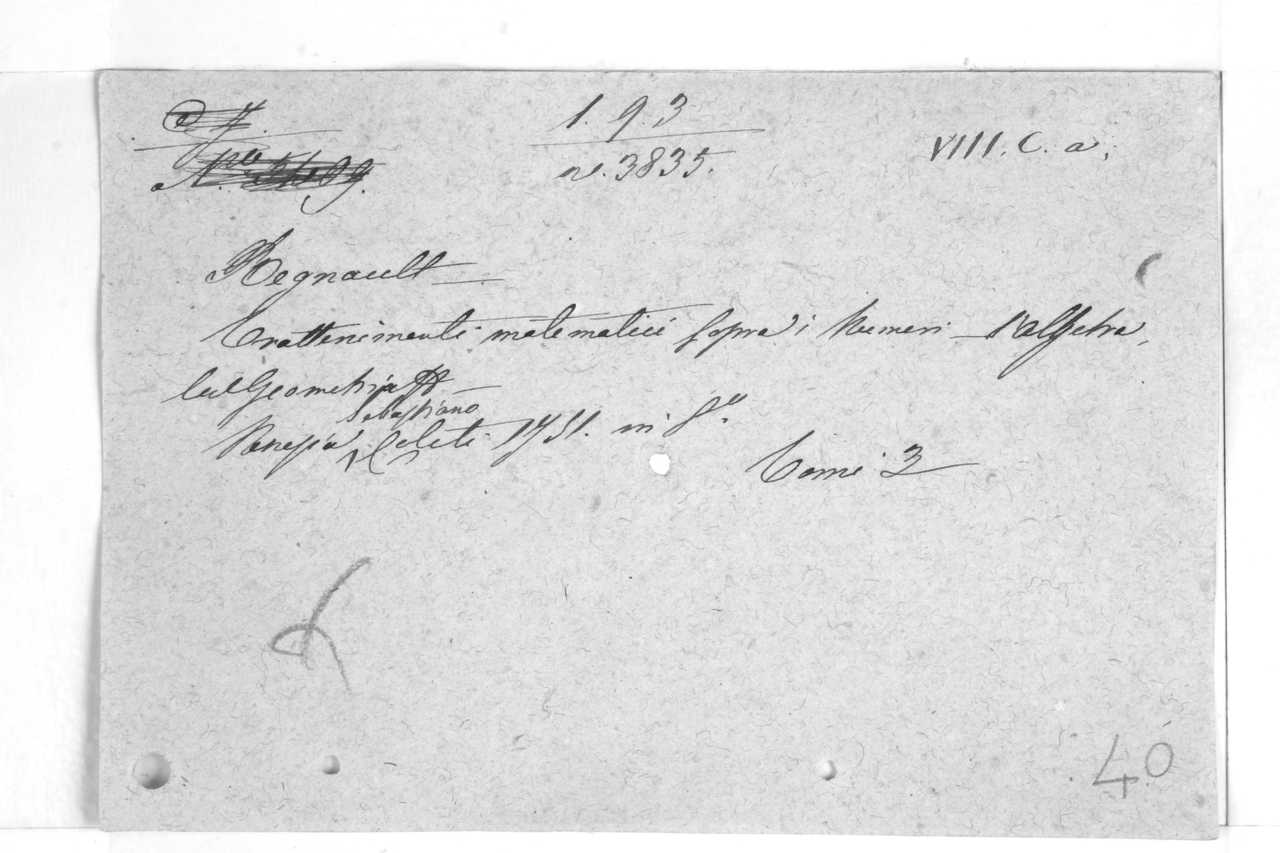 1. 9. 3
n. 3835.
VIII. C. a.
Regnault
Trattenimenti matematici sopra i Numeri l'Algebra,
la Geometria
Sebastiano
Venezia, Coleti 1751. in 8.º
Tomi 3
40